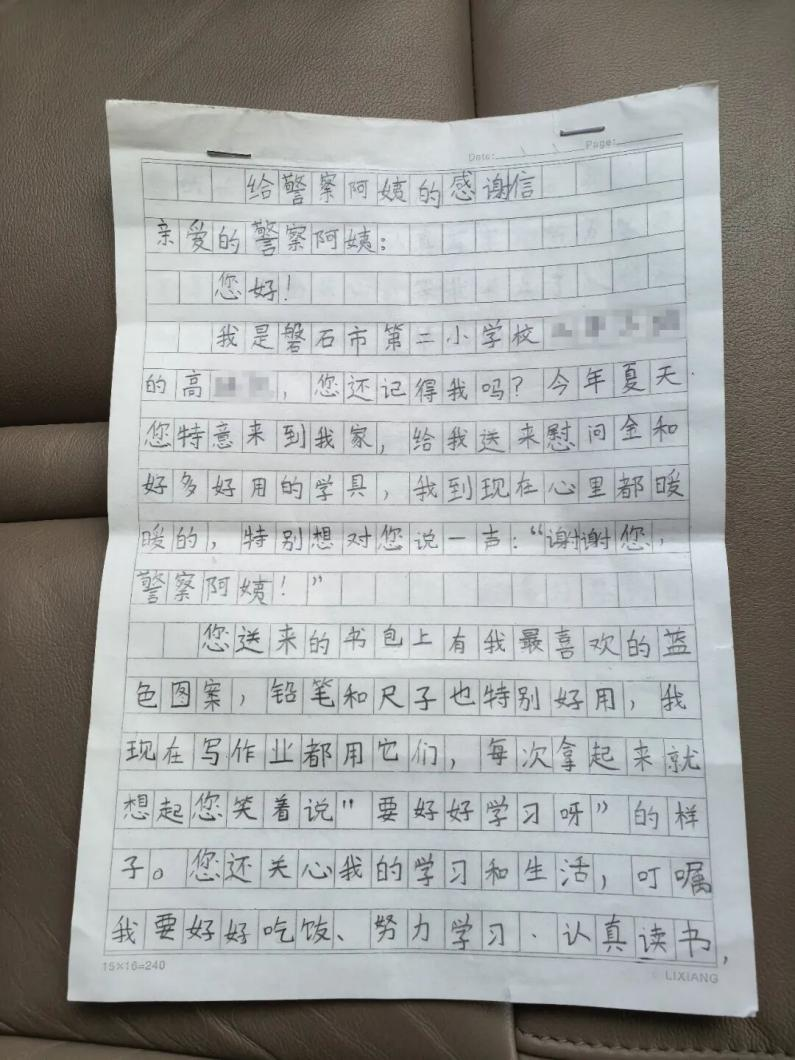 Date: Page:
给警察阿姨的感谢信
亲爱的警察阿姨：
您好！
我是磐石市第二小学校
的高，您还记得我吗？今年夏天
您特意来到我家，给我送来慰问金和
好多好用的学具，我到现在心里都暖
暖的，特别想对您说一声：“谢谢您，
警察阿姨！”
您送来的书包上有我最喜欢的蓝
色图案，铅笔和尺子也特别好用，我
现在写作业都用它们，每次拿起来就
想起您笑着说“要好好学习呀”的样
子。您还关心我的学习和生活，叮嘱
我要好好吃饭、努力学习、认真读书，
15×16=240 LIXIANG